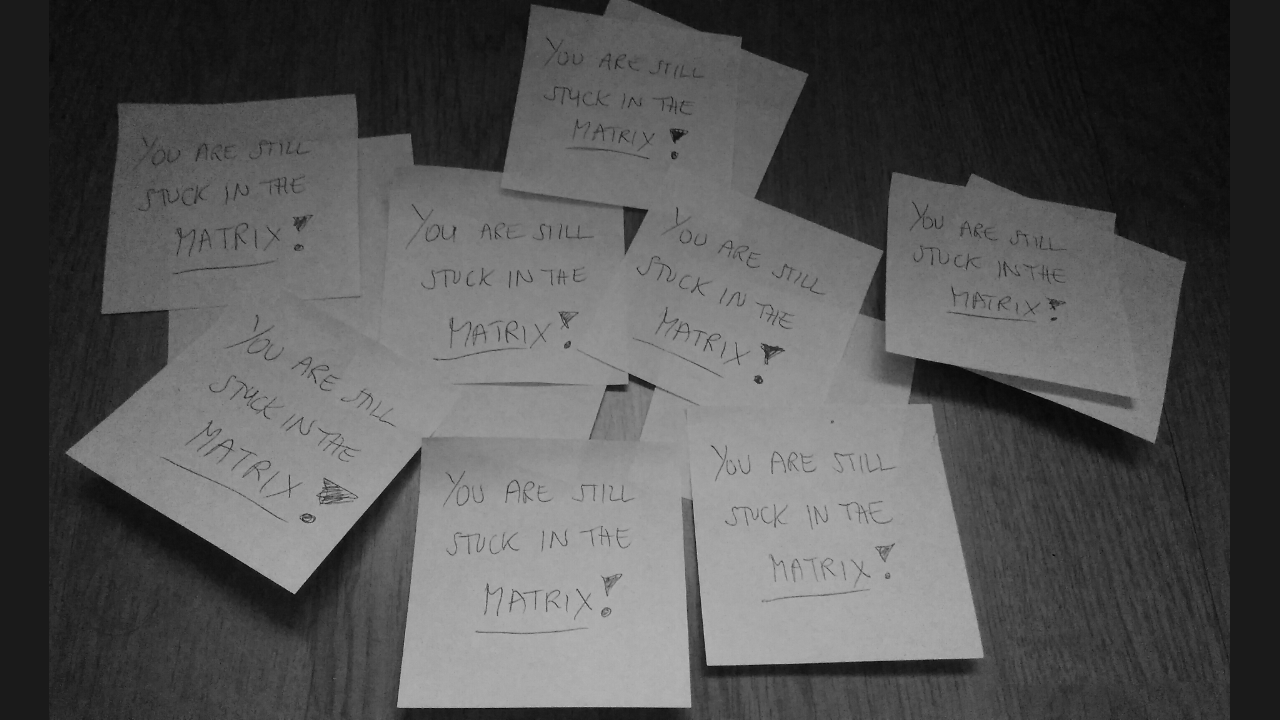 YOU ARE STILL
STUCK IN THE
MATRIX!
YOU ARE STILL
STUCK IN THE
MATRIX!
YOU ARE STILL
STUCK IN THE
MATRIX!
YOU ARE STILL
STUCK IN THE
MATRIX!
YOU ARE STILL
STUCK IN THE
MATRIX!
YOU ARE STILL
STUCK IN THE
MATRIX!
YOU ARE STILL
STUCK IN THE
MATRIX!
YOU ARE STILL
STUCK IN THE
MATRIX!